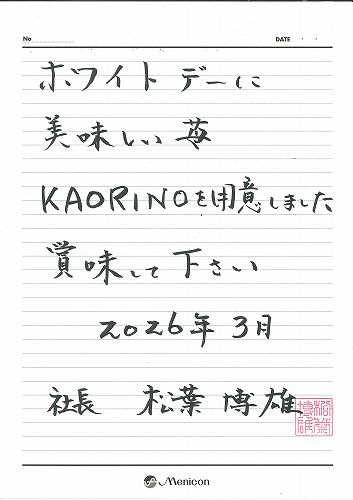 No
DATE ・ ・
ホワイトデーに
美味しい苺
KAORINOを用意しました
賞味して下さい
2026年3月
社長 松葉 博雄
Menicon